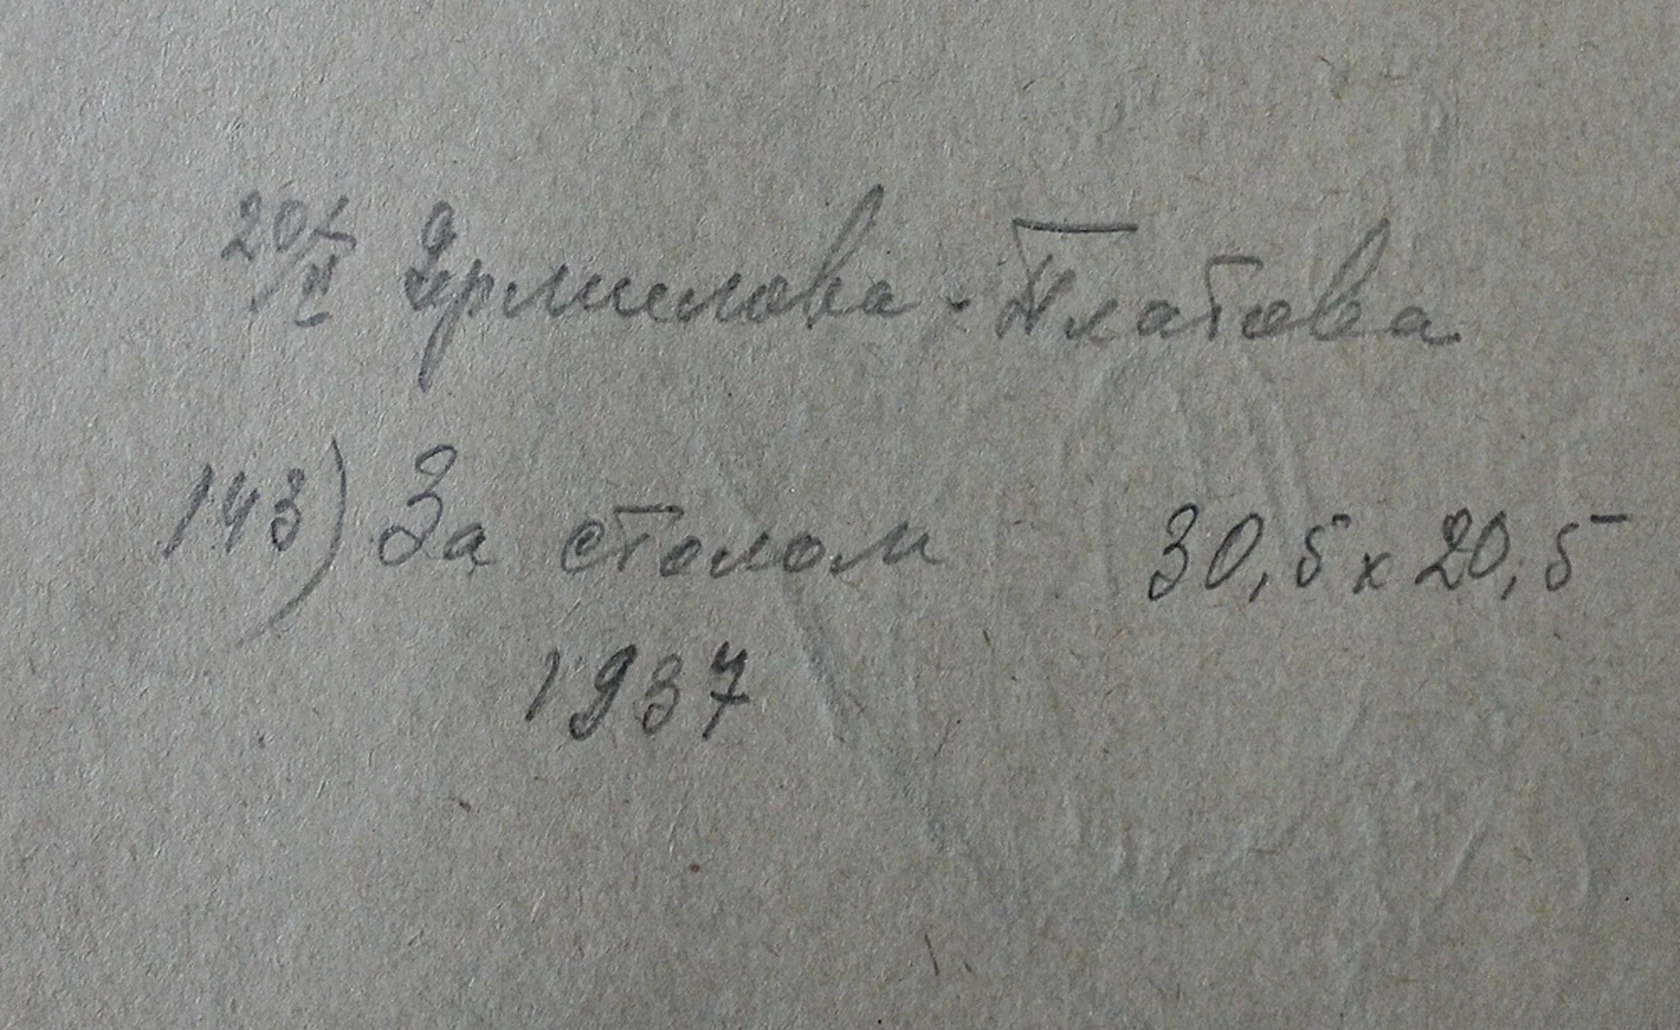 Ермилова-Платова
143) За столом 30,5 х 20,5
1937